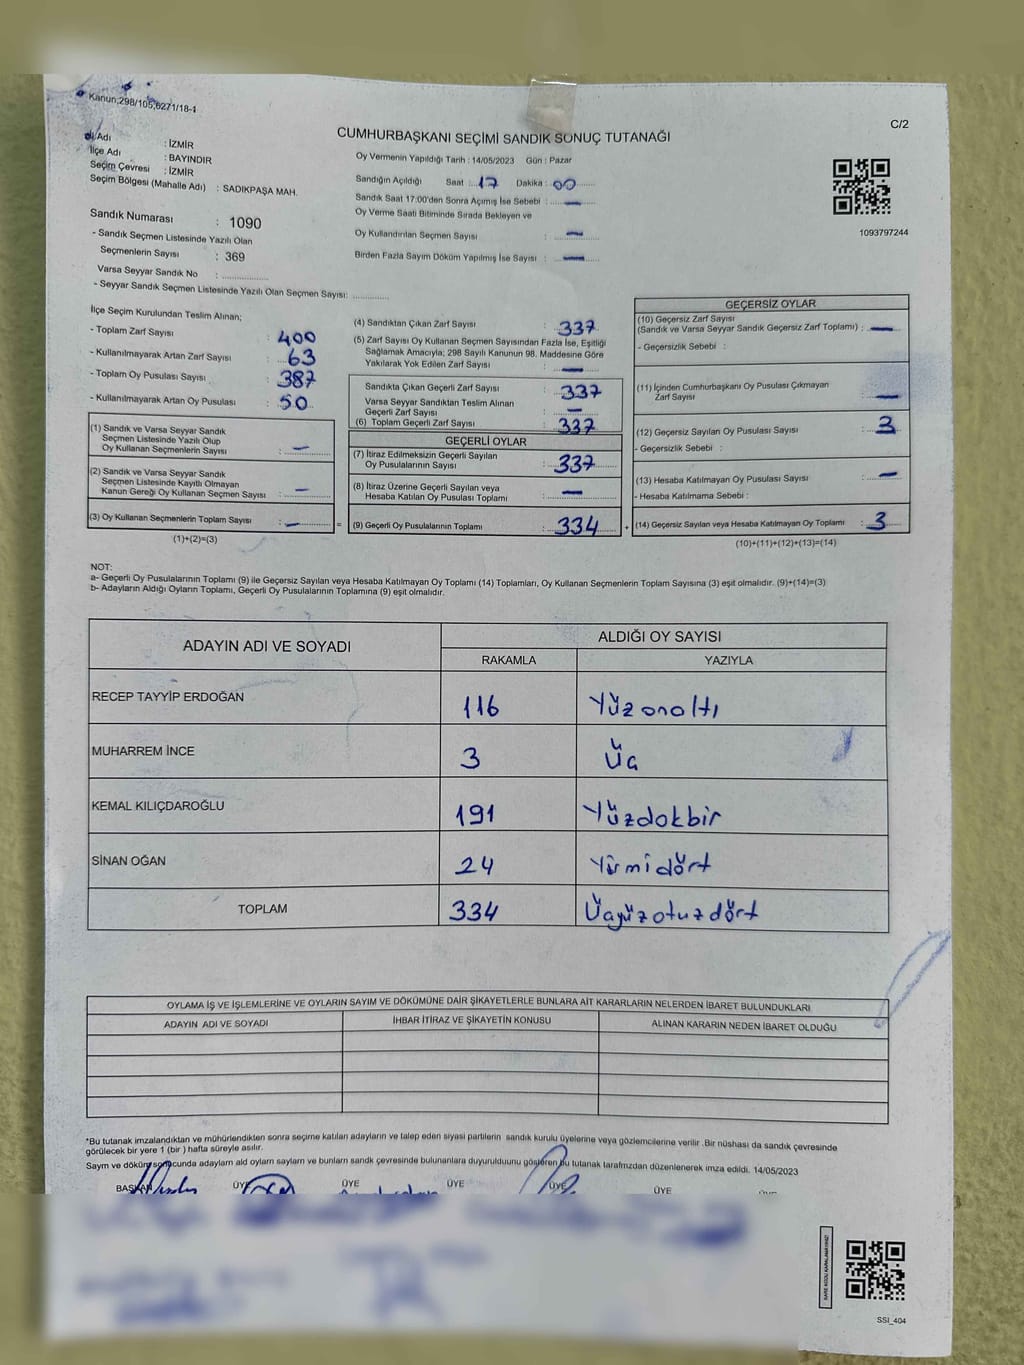 Kanun;298/105,6271/18-1
C/2
CUMHURBAŞKANI SEÇİMİ SANDIK SONUÇ TUTANAĞI
İl Adı : İZMİR
İlçe Adı : BAYINDIR
Seçim Çevresi : İZMİR
Seçim Bölgesi (Mahalle Adı) : SADIKPAŞA MAH.
Sandık Numarası : 1090
- Sandık Seçmen Listesinde Yazılı Olan
Seçmenlerin Sayısı : 369
Varsa Seyyar Sandık No : ............
- Seyyar Sandık Seçmen Listesinde Yazılı Olan Seçmen Sayısı: ............
Oy Vermenin Yapıldığı Tarih : 14/05/2023 Gün : Pazar
Sandığın Açıldığı Saat : 17 Dakika : 00
Sandık Saat 17:00'den Sonra Açımış İse Sebebi : —
Oy Verme Saati Bitiminde Sırada Bekleyen ve
Oy Kullandırılan Seçmen Sayısı : —
Birden Fazla Sayım Döküm Yapılmış İse Sayısı : —
1093797244
İlçe Seçim Kurulundan Teslim Alınan;
- Toplam Zarf Sayısı : 400
- Kullanılmayarak Artan Zarf Sayısı : 63
- Toplam Oy Pusulası Sayısı : 387
- Kullanılmayarak Artan Oy Pusulası : 50
(1) Sandık ve Varsa Seyyar Sandık
Seçmen Listesinde Yazılı Olup
Oy Kullanan Seçmenlerin Sayısı : —
(2) Sandık ve Varsa Seyyar Sandık
Seçmen Listesinde Kayıtlı Olmayan
Kanun Gereği Oy Kullanan Seçmen Sayısı : —
(3) Oy Kullanan Seçmenlerin Toplam Sayısı : — =
(1)+(2)=(3)
(4) Sandıktan Çıkan Zarf Sayısı : 337
(5) Zarf Sayısı Oy Kullanan Seçmen Sayısından Fazla İse, Eşitliği
Sağlamak Amacıyla; 298 Sayılı Kanunun 98. Maddesine Göre
Yakılarak Yok Edilen Zarf Sayısı : —
Sandıkta Çıkan Geçerli Zarf Sayısı : 337
Varsa Seyyar Sandıktan Teslim Alınan
Geçerli Zarf Sayısı : —
(6) Toplam Geçerli Zarf Sayısı : 337
GEÇERLİ OYLAR
(7) İtiraz Edilmeksizin Geçerli Sayılan
Oy Pusulalarının Sayısı : 337
(8) İtiraz Üzerine Geçerli Sayılan veya
Hesaba Katılan Oy Pusulası Toplamı : —
(9) Geçerli Oy Pusulalarının Toplamı : 334 +
GEÇERSİZ OYLAR
(10) Geçersiz Zarf Sayısı
(Sandık ve Varsa Seyyar Sandık Geçersiz Zarf Toplamı) : —
- Geçersizlik Sebebi :
(11) İçinden Cumhurbaşkanı Oy Pusulası Çıkmayan
Zarf Sayısı : —
(12) Geçersiz Sayılan Oy Pusulası Sayısı : 3
- Geçersizlik Sebebi :
(13) Hesaba Katılmayan Oy Pusulası Sayısı : —
- Hesaba Katılmama Sebebi :
(14) Geçersiz Sayılan veya Hesaba Katılmayan Oy Toplamı : 3
(10)+(11)+(12)+(13)=(14)
NOT:
a- Geçerli Oy Pusulalarının Toplamı (9) ile Geçersiz Sayılan veya Hesaba Katılmayan Oy Toplamı (14) Toplamları, Oy Kullanan Seçmenlerin Toplam Sayısına (3) eşit olmalıdır. (9)+(14)=(3)
b- Adayların Aldığı Oyların Toplamı, Geçerli Oy Pusulalarının Toplamına (9) eşit olmalıdır.
ADAYIN ADI VE SOYADI ALDIĞI OY SAYISI
RAKAMLA YAZIYLA
RECEP TAYYİP ERDOĞAN 116 Yüzonaltı
MUHARREM İNCE 3 Üç
KEMAL KILIÇDAROĞLU 191 Yüzdokbir
SİNAN OĞAN 24 Yirmidört
TOPLAM 334 Üçyüzotuzdört
OYLAMA İŞ VE İŞLEMLERİNE VE OYLARIN SAYIM VE DÖKÜMÜNE DAİR ŞİKAYETLERLE BUNLARA AİT KARARLARIN NELERDEN İBARET BULUNDUKLARI
ADAYIN ADI VE SOYADI İHBAR İTİRAZ VE ŞİKAYETİN KONUSU ALINAN KARARIN NEDEN İBARET OLDUĞU
*Bu tutanak imzalandıktan ve mühürlendikten sonra seçime katılan adayların ve talep eden siyasi partilerin sandık kurulu üyelerine veya gözlemcilerine verilir .Bir nüshası da sandık çevresinde
görülecek bir yere 1 (bir ) hafta süreyle asılır.
Sayım ve döküm sonucunda adayların ald oyların sayların ve bunların sandk çevresinde bulunanlara duyurulduunu gösteren bu tutanak tarafmzdan düzenlenerek imza edildi. 14/05/2023
BAŞKAN ÜYE ÜYE ÜYE ÜYE ÜYE
SSI_404